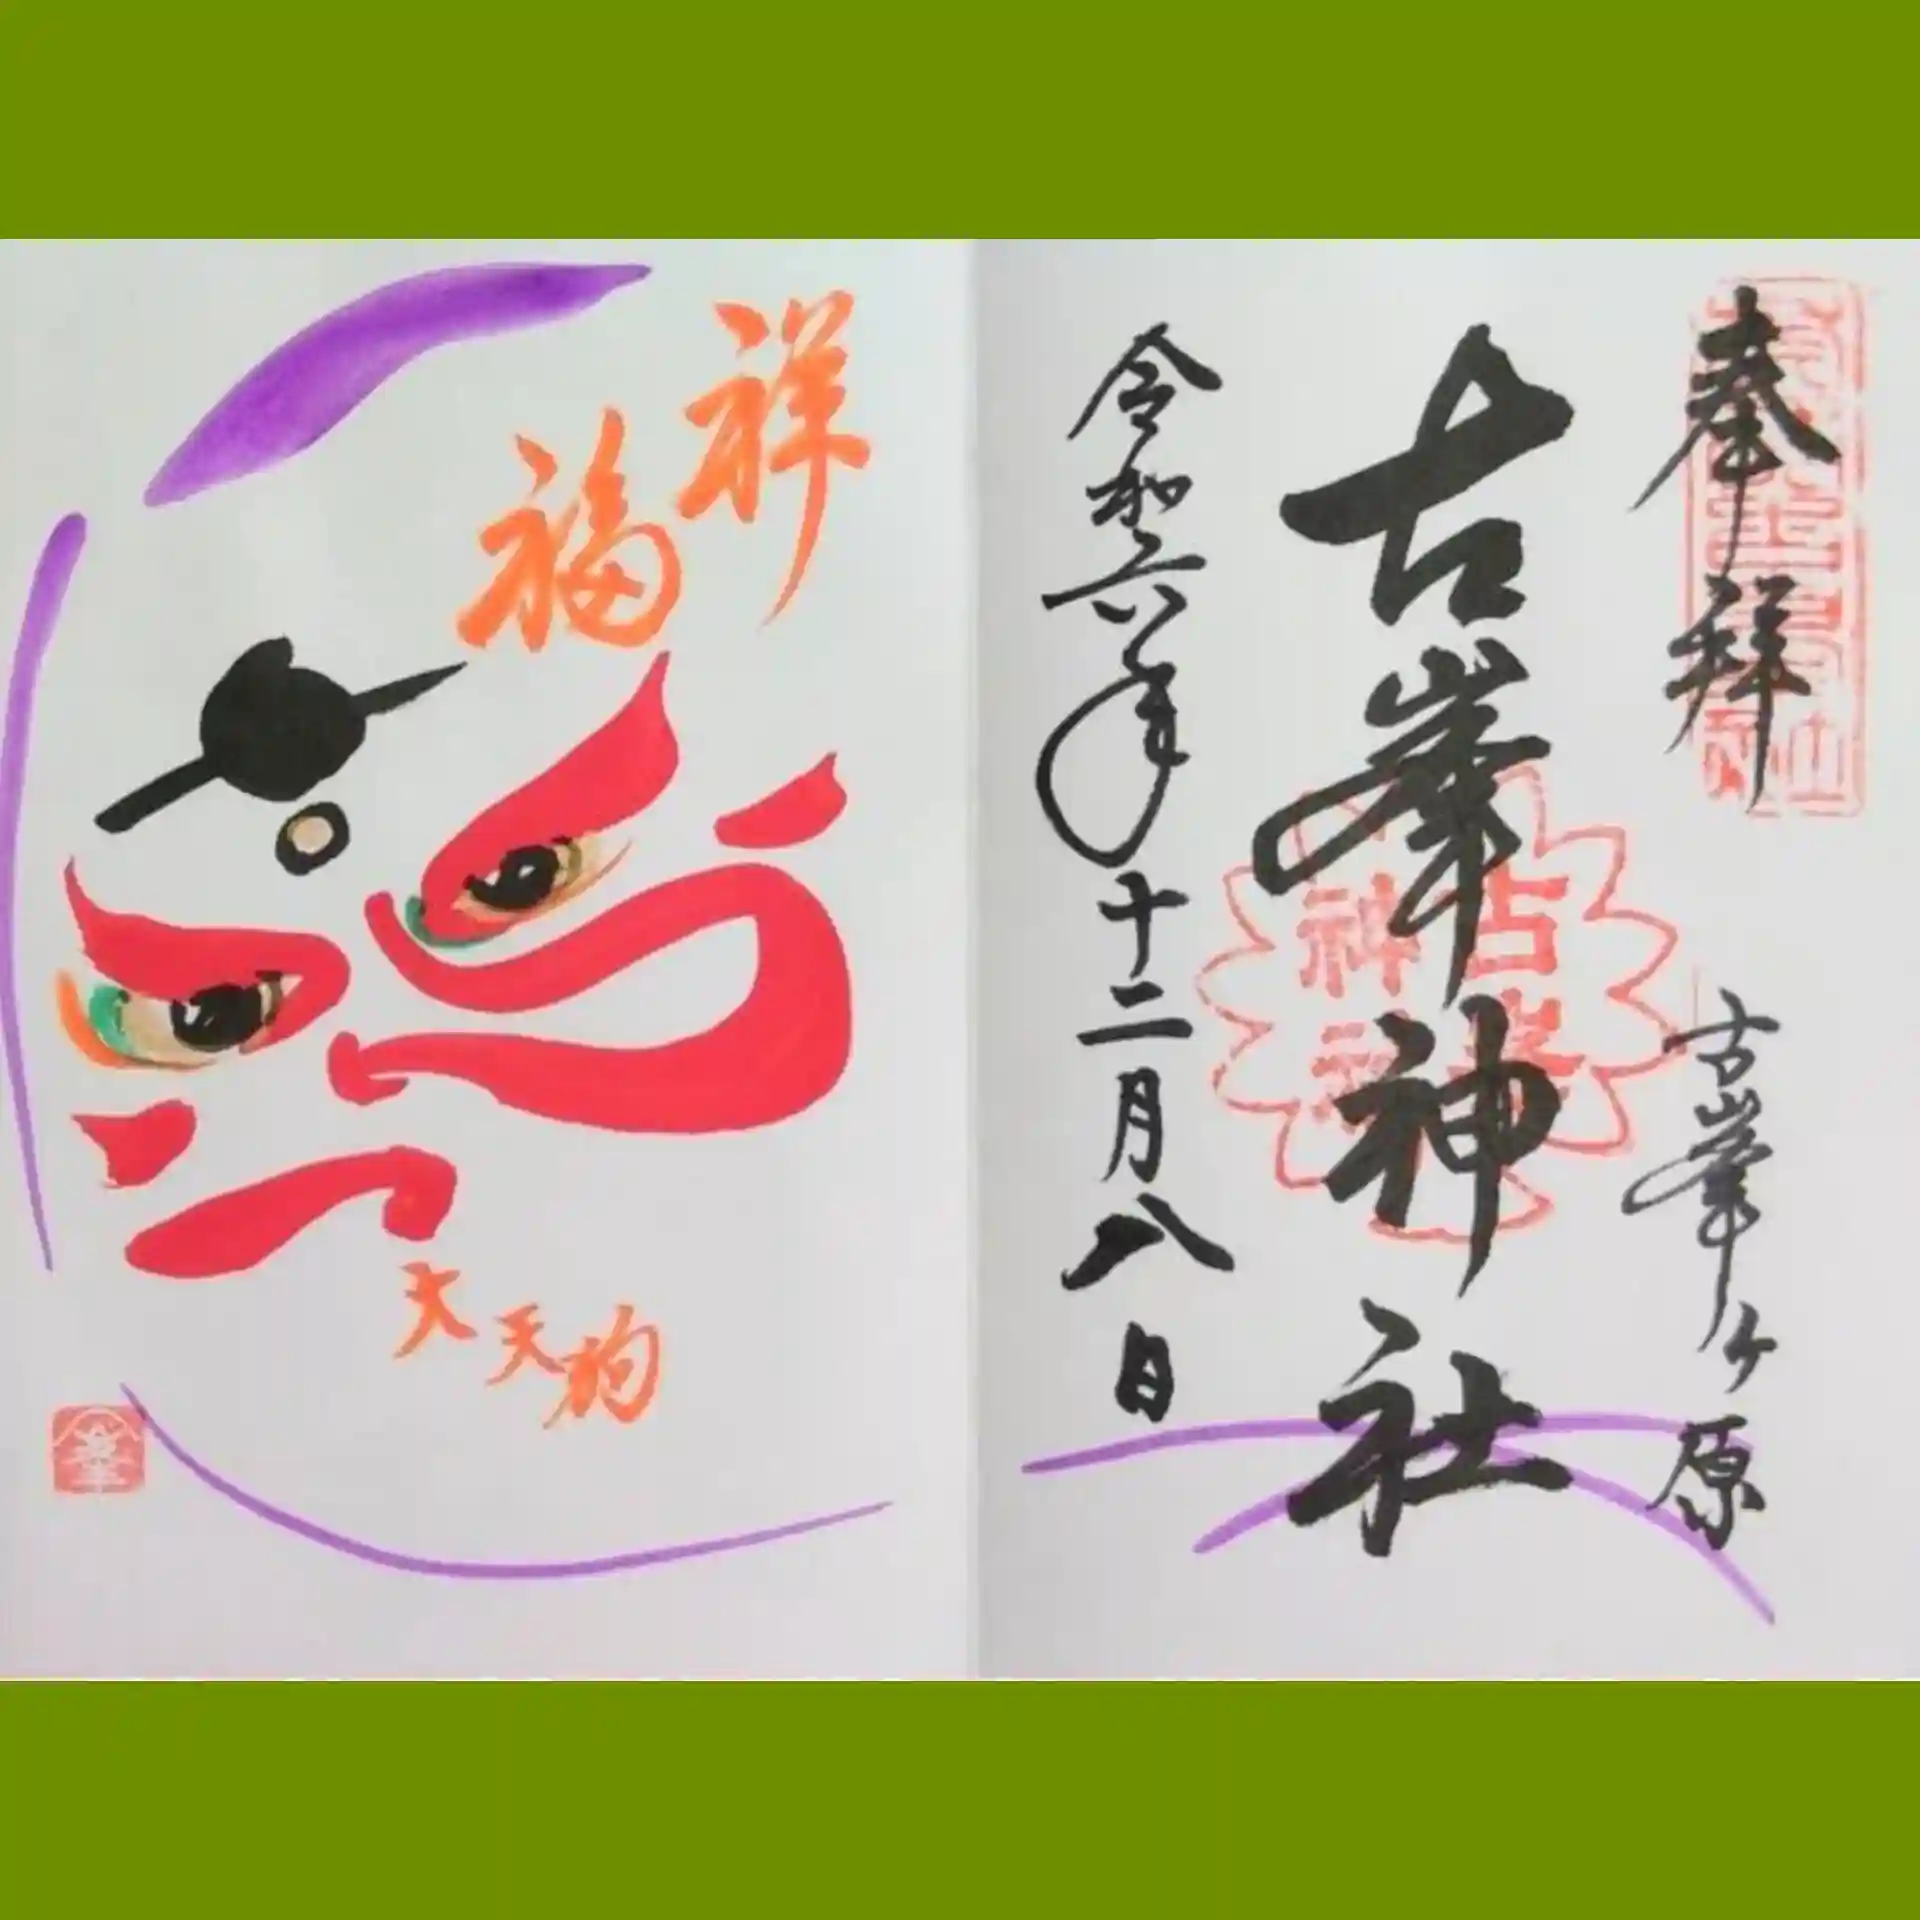 奉拝
古峯ヶ原
古峯神社
令和六年十二月八日
祥福
大天狗
古峯
神社
峯